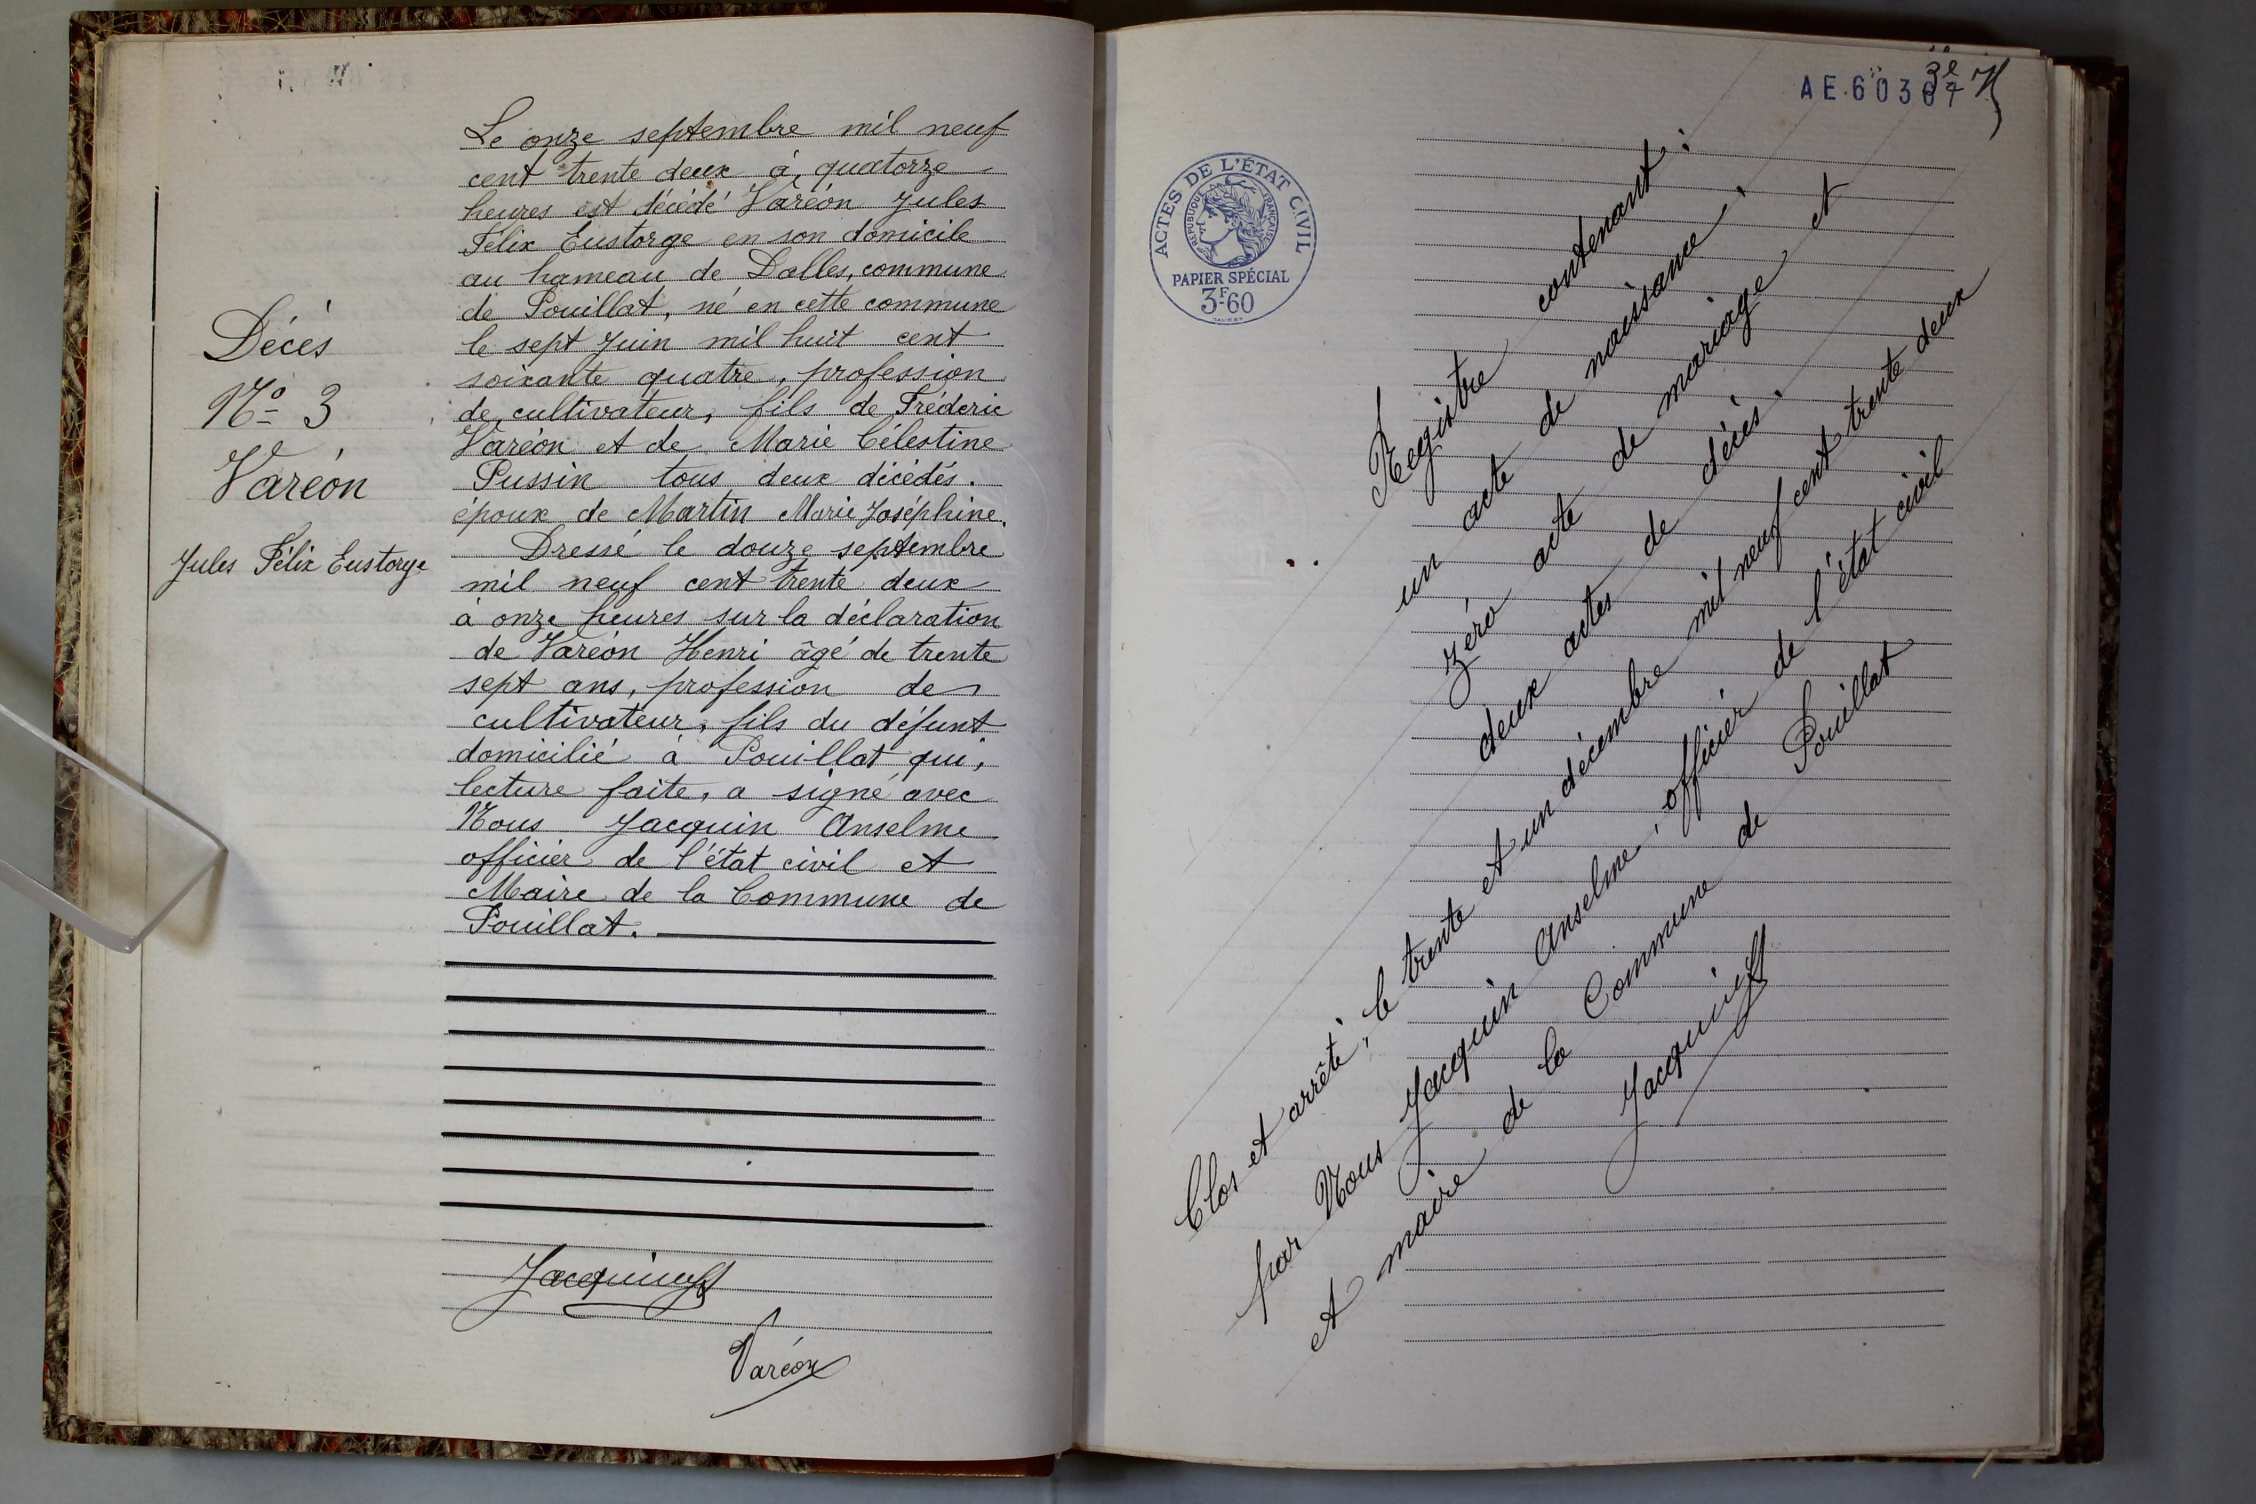 Décès
No 3
Varéon
Jules Félix Eustorge
Le onze septembre mil neuf
cent trente deux à quatorze
heures est décédé Varéon Jules
Félix Eustorge en son domicile
au hameau de Dalles, commune
de Pouillat, né en cette commune
le sept Juin mil huit cent
soixante quatre, profession
de cultivateur, fils de Fréderic
Varéon et de Marie Célestine
Pussin tous deux décédés.
époux de Martin Marie Joséphine.
Dressé le douze septembre
mil neuf cent trente deux
à onze heures sur la déclaration
de Varéon Henri âgé de trente
sept ans, profession de
cultivateur, fils du défunt
domicilié à Pouillat qui,
lecture faite, a signé avec
Nous Jacquin Anselme
officier de l'état civil et
Maire de la Commune de
Pouillat.
Jacquin
Varéon
AE.60367
ACTES DE L'ÉTAT CIVIL
RÉPUBLIQUE FRANÇAISE
PAPIER SPÉCIAL
3F60
Registre contenant :
un acte de naissance ;
zéro acte de mariage et
deux actes de décès.
Clos et arrêté, le trente et un décembre mil neuf cent trente deux
par Nous Jacquin Anselme, officier de l'état civil
et maire de la Commune de Pouillat
Jacquin